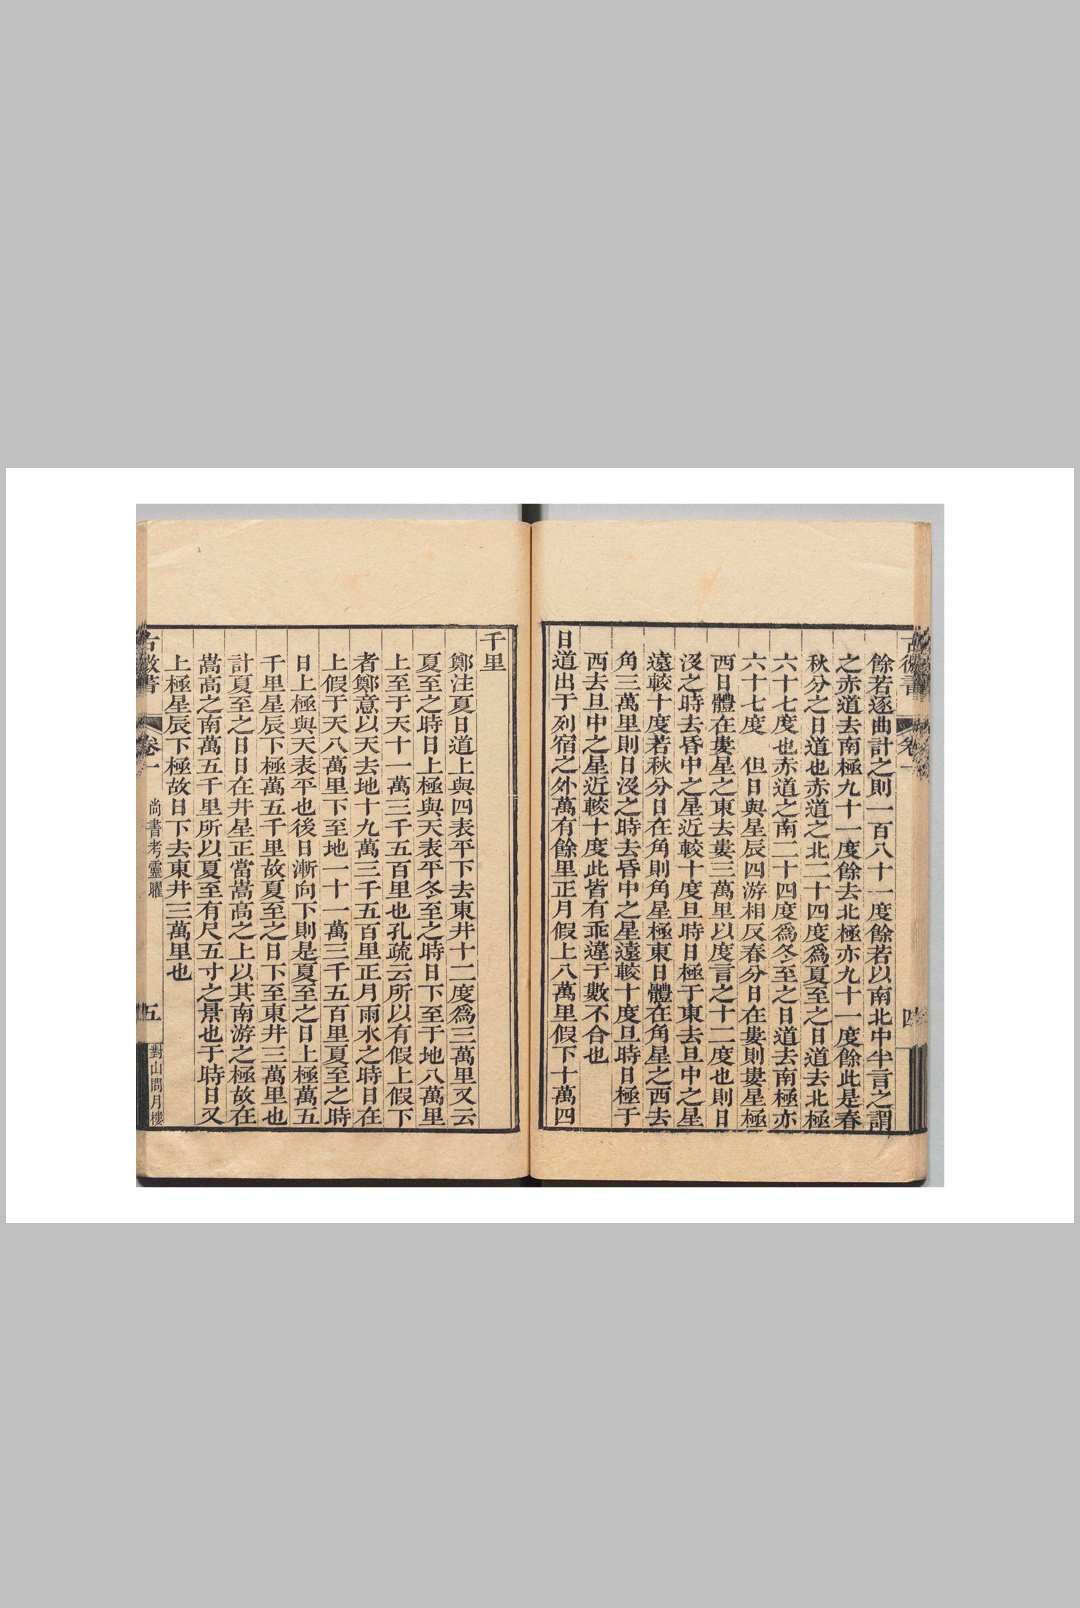 餘若逐曲計之則一百八十一度餘若以南北中半言之謂
之赤道去南極九十一度餘去北極亦九十一度餘此是春
秋分之日道也赤道之北二十四度爲夏至之日道去北極
六十七度也赤道之南二十四度爲冬至之日道去南極亦
六十七度 但日與星辰四游相反春分日在婁則婁星極
西日體在婁星之東去婁三萬里以度言之十二度也則日
沒之時去昏中之星近較十度旦時日極于東去旦中之星
遠較十度若秋分日在角則角星極東日體在角星之西去
角三萬里則日沒之時去昏中之星遠較十度旦時日極于
西去旦中之星近較十度此皆有乖違于數不合也
日道出于列宿之外萬有餘里正月假上八萬里假下十萬四
古微書 卷一
四
千里
鄭注夏日道上與四表平下去東井十二度爲三萬里又云
夏至之時日上極與天表平冬至之時日下至于地八萬里
上至于天十一萬三千五百里也孔疏云所以有假上假下
者鄭意以天去地十九萬三千五百里正月雨水之時日在
上假于天八萬里下至地一十一萬三千五百里夏至之時
日上極與天表平也後日漸向下則是夏至之日上極萬五
千里星辰下極萬五千里故夏至之日下至東井三萬里也
計夏至之日日在井星正當嵩高之上以其南游之極故在
嵩高之南萬五千里所以夏至有尺五寸之景也于時日又
上極星辰下極故日下去東井三萬里也
古微書 卷一 尚書考靈曜
五
對山問月樓